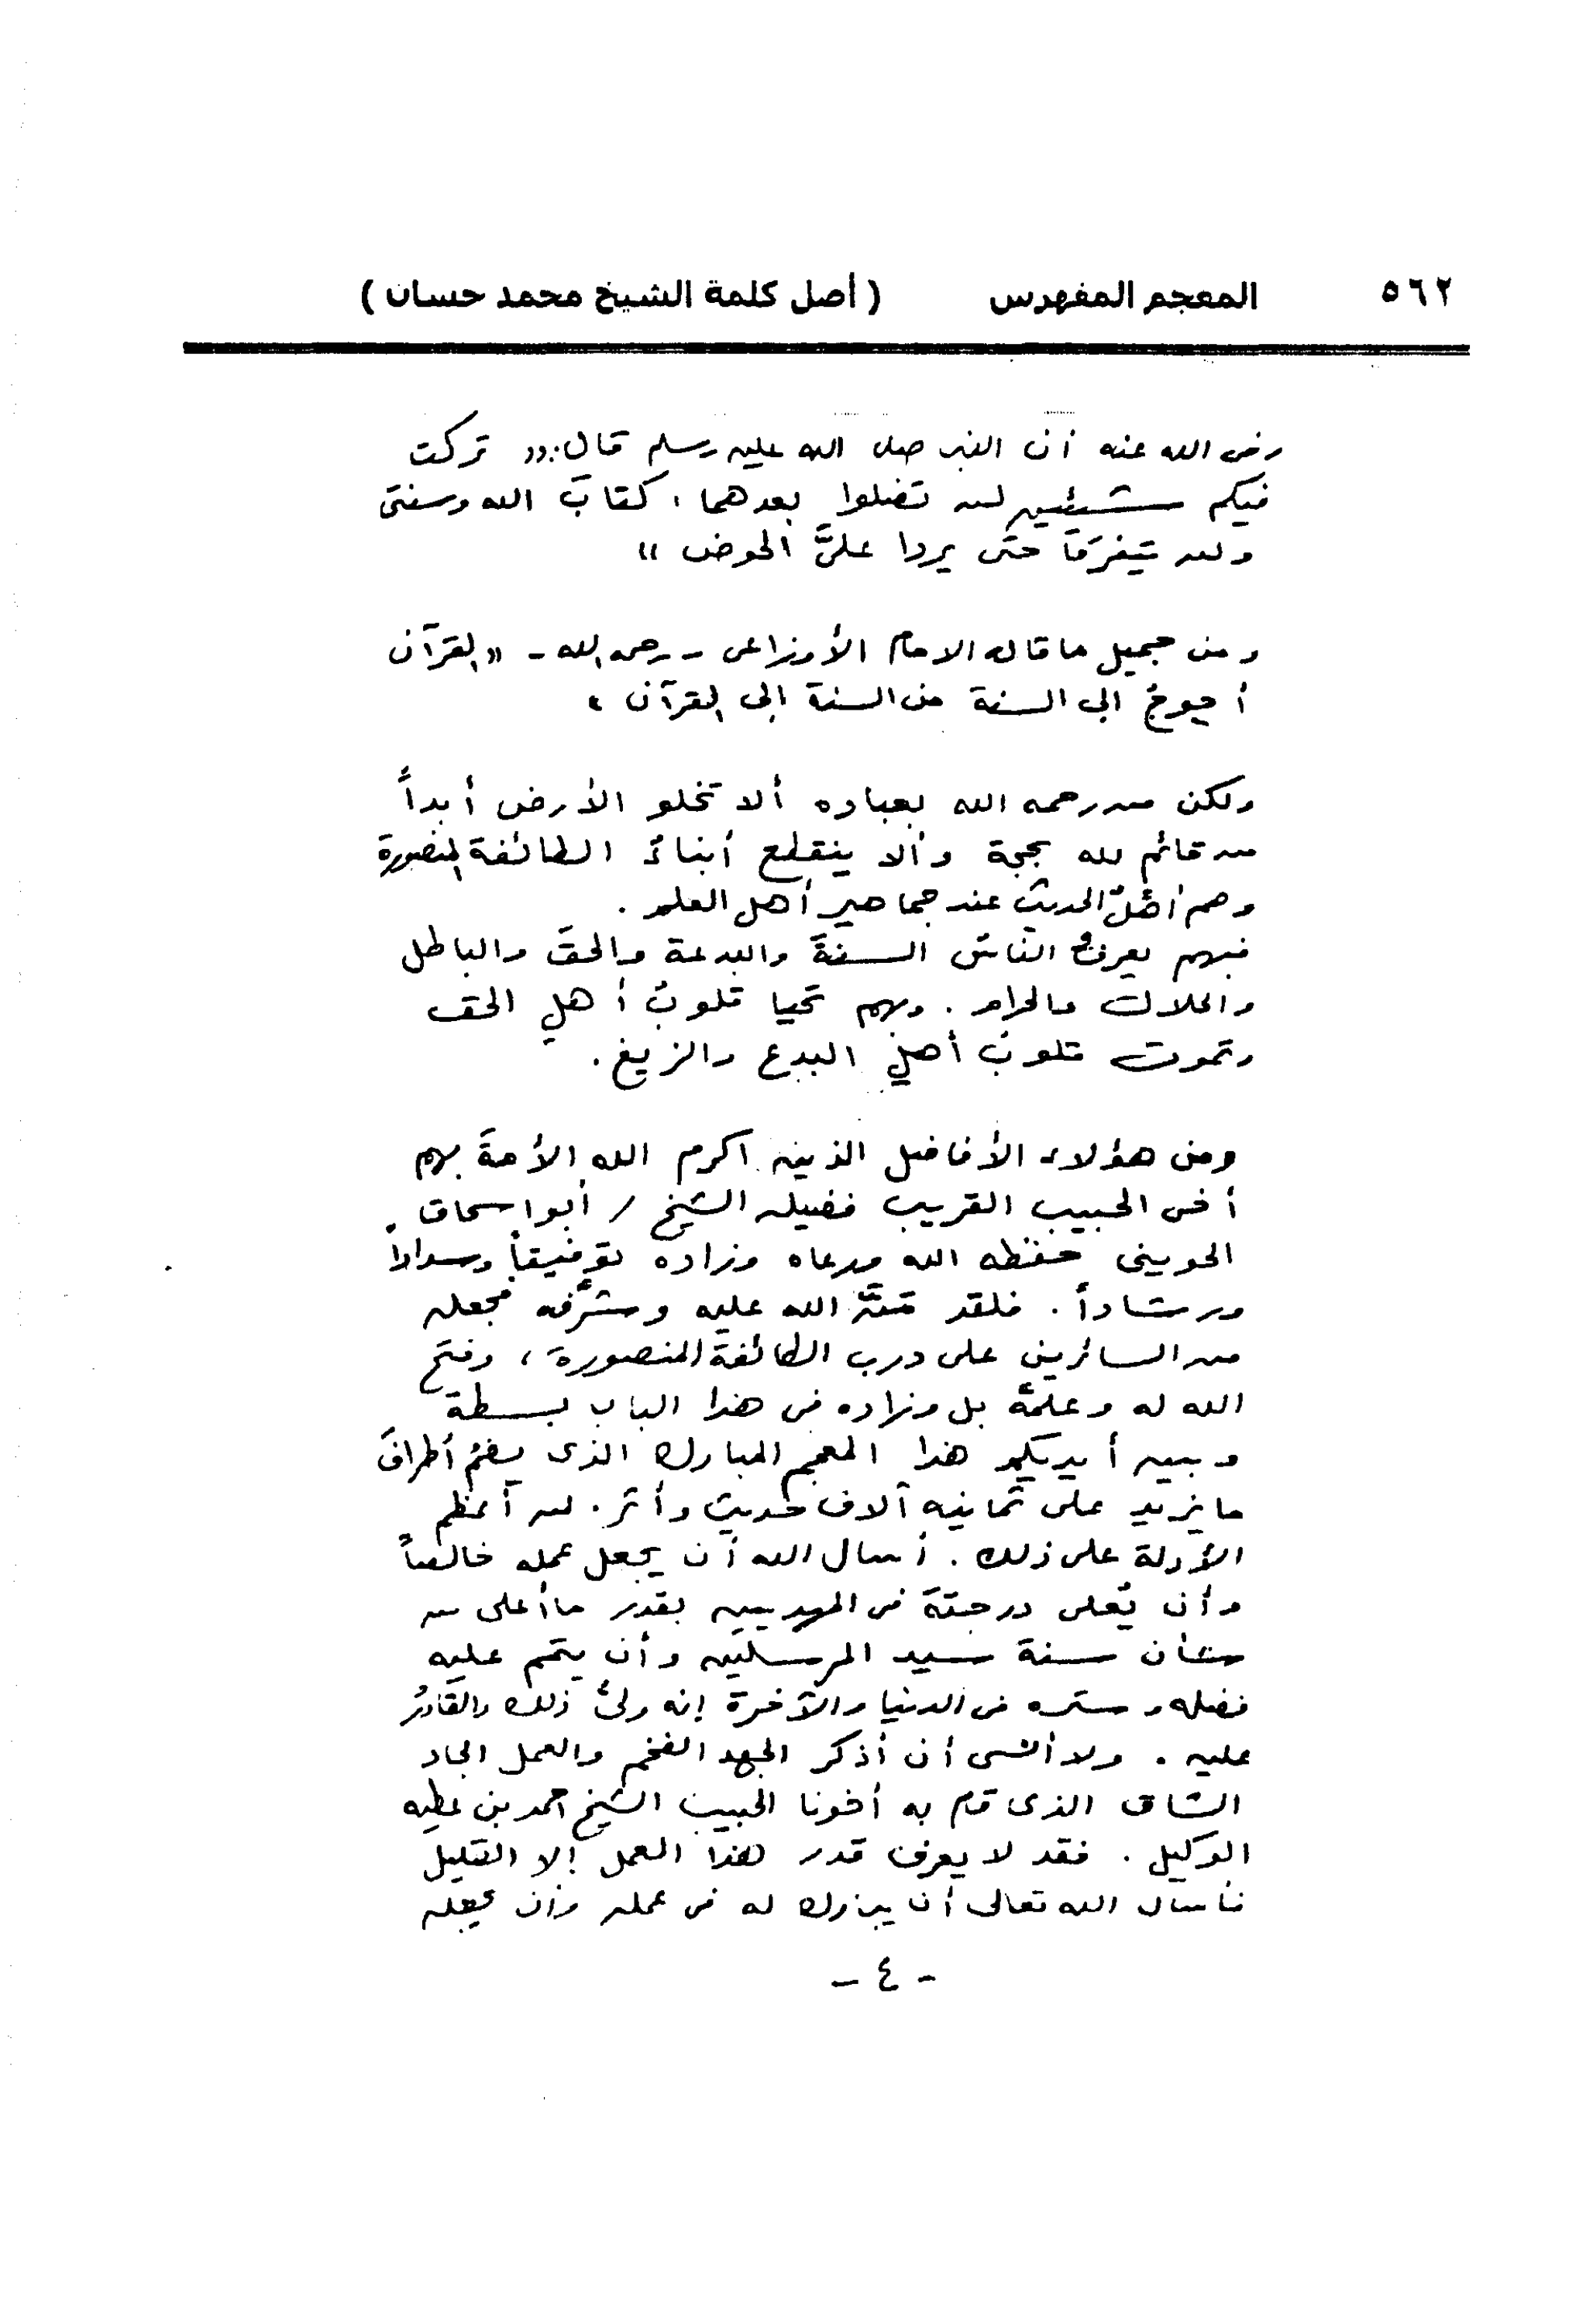 ٥٦٢ المعجم المفهرس ( أصل كلمة الشيخ محمد حسان )
رضى الله عنه أن النبى صلى الله عليه وسلم قال: (( تركت
فيكم شيئين لن تضلوا بعدهما ، كتابَ الله وسنتى
ولن يتفرَّقا حتى يردا علىَّ الحوض ))
ومن جميل ما قاله الامام الأوزاعى - رحمه الله - (( القرآن
أحوجُ إلى السنة من السنة إلى القرآن ))
ولكن من رحمه الله بعباده ألا تخلو الأرض أبداً
من قائم لله بحجة وألا ينقطع أبناءُ الطائفة المنصورة
وهم أهلُ الحديث عند جماهير أهل العلم .
فبهم يعرفُ الناسُ السنةَ والبدعة والحقَّ والباطل
والحلال والحرام . وبهم تحيا قلوبُ أهلِ الحق
وتموت قلوبُ أهلِ البدع والزيغ .
ومن هؤلاء الأفاضل الذين اكرم الله الأمةَ بهم
أخى الحبيب القريب فضيله الشيخ / أبو اسحاق
الحوينى حفظه الله ورعاه وزاده توفيقاً وسداداً
ورشاداً . فلقد منَّ الله عليه وشرَّفه فجعله
من السائرين على درب الطائفة المنصورة ، وفتح
الله له وعلمَّه بل وزاده فى هذا الباب بسطة
وبين أيديكم هذا المعجم المبارك الذى يضمُ أطرافَ
ما يزيد على ثمانيه آلاف حديث وأثر . لمن أعظم
الأدلة على ذلك . أسال الله أن يجعل عمله خالصاً
وأن يُعلى درجتَه فى المهديين بقدر ما أعلى من
شأن سنة سيد المرسلين وأن يتمم عليه
فضله وستره فى الدنيا والآخرة إنه ولىُّ ذلك والقادرُ
عليه . ولا أنسى أن أذكر الجهد الفخم والعمل الجاد
الشاق الذى قام به أخونا الحبيب الشيخ احمد بن عطيه
الوكيل . فقد لا يعرف قدر هذا العمل إلا القليل
فأسال الله تعالى أن يبارك له فى عمله وأن يجعله
- ٤ -